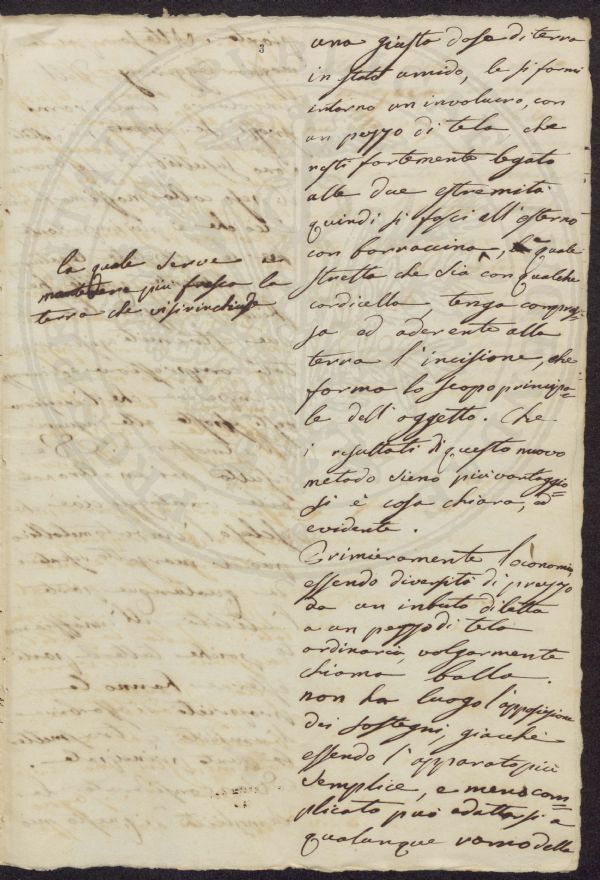 3
una giusta dose di terra
in stato umido, le si formi
intorno un involucro, con
un pezzo di tela, che
resti fortemente legato
alle due estremità
quindi si fasci all'esterno
con borraccina, la quale
stretta che sia con qualche
cordicella, tenga compres=
sa ed aderente alla
terra l'incisione, che
forma lo scopo principa=
le dell'oggetto. Che
i resultati di questo nuovo
metodo sieno più vantaggio=
si è cosa chiara, ed
evidente.
Primieramente l'economia
essendo diversità di prezzo
da un inbuto di latta
a un pezzo di tela
ordinaria, volgarmente
chiama balla.
non ha luogo l'apposizione
dei sostegni, giacchè
essendo l'apparato più
semplice, e meno com=
plicato può adattarsi a
qualunque ramo della
la quale serve a
mantenere più fresca la
terra che vi si rinchiude